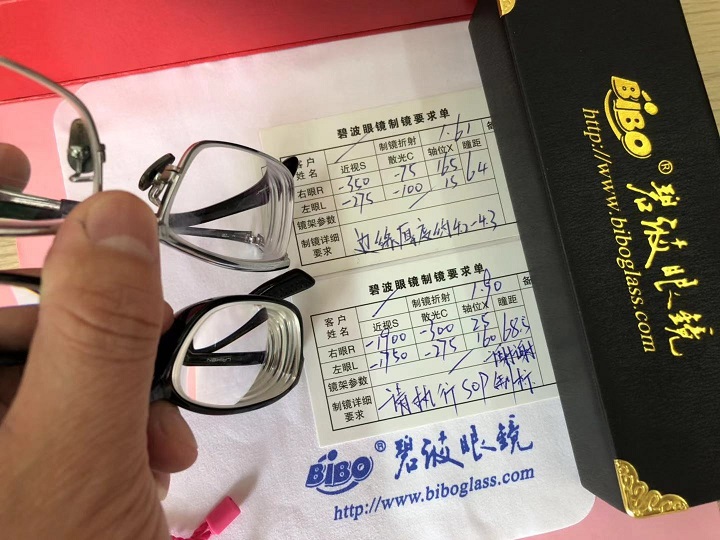 碧波眼镜制镜要求单
客户姓名 制镜折射 1.61 备
近视S 散光C 轴位X 瞳距
右眼R -350 -75 165 64
左眼L -275 -100 15
镜架参数
制镜详细要求 边缘厚度约4.2-4.3
碧波眼镜制镜要求单
客户姓名 制镜折射 1.90 备
近视S 散光C 轴位X 瞳距
右眼R -1900 -300 25 68.5
左眼L -1750 -275 160
镜架参数 谢谢
制镜详细要求 请执行SOP制标
BiBO® 碧波眼镜
http://www.biboglass.com
BiBO® 碧波眼镜
http://www.biboglass.com